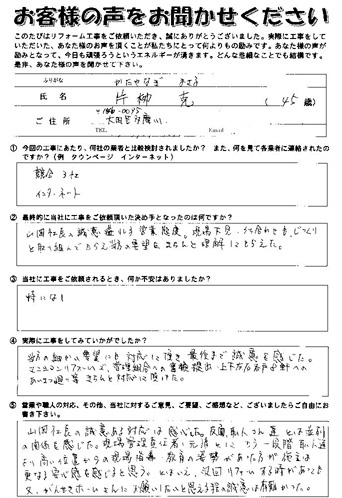 お客様の声をお聞かせください
このたびはリフォーム工事をご依頼いただき、誠にありがとうございました。実際に工事をして
いただいた、あなた様のお声を頂くことが私たちにとって何よりもの励みです。あなた様の声が
励みとなって、今日も頑張ろうというエネルギーが湧きます。どんな些細なことでも結構です。
是非、あなた様の声を聞かせて下さい。
ふりがな かたやなぎ
氏名 片柳 克 (45歳)
ご住所
TEL Email
① 今回の工事にあたり、何社の業者と比較検討されましたか? また、何を見て各業者に連絡されたの
ですか?(例 タウンページ インターネット)
競合 3社
インターネット
② 最終的に当社に工事をご依頼頂いた決め手となったのは何ですか?
山内社長の誠意溢れる営業態度。現場下見、打ち合わせも、じっくり
と取り組んでもらえ当方の要望をきちんと理解してもらえた。
③ 当社に工事をご依頼されるとき、何か不安はありましたか?
特になし
④ 実際に工事をしてみていかがでしたか?
当方の細かい要望にも対応して頂き最後まで誠意を感じた。
マンションリフォームで、管理組合への書類提出、上下左右
あいさつ廻り等きちんと対応して頂けた。
⑤ 営業や職人の対応、その他、当社に対するご意見、ご要望、ご感想など、ございましたらご自由にお
書き下さい。
山内社長の誠意ある対応は感じた。反面職人さん達とは並列
の関係を感じた。現場管理責任者・元請としてもう一段階職人達
より高い位置からの現場指導・教育の姿勢があった方が施主は
更なる安心感を感じると思う。とはいえ、次回リフォームする時があっても
又、がんせきホームさんにお願いしたいと思える程の誠意は有難かった。